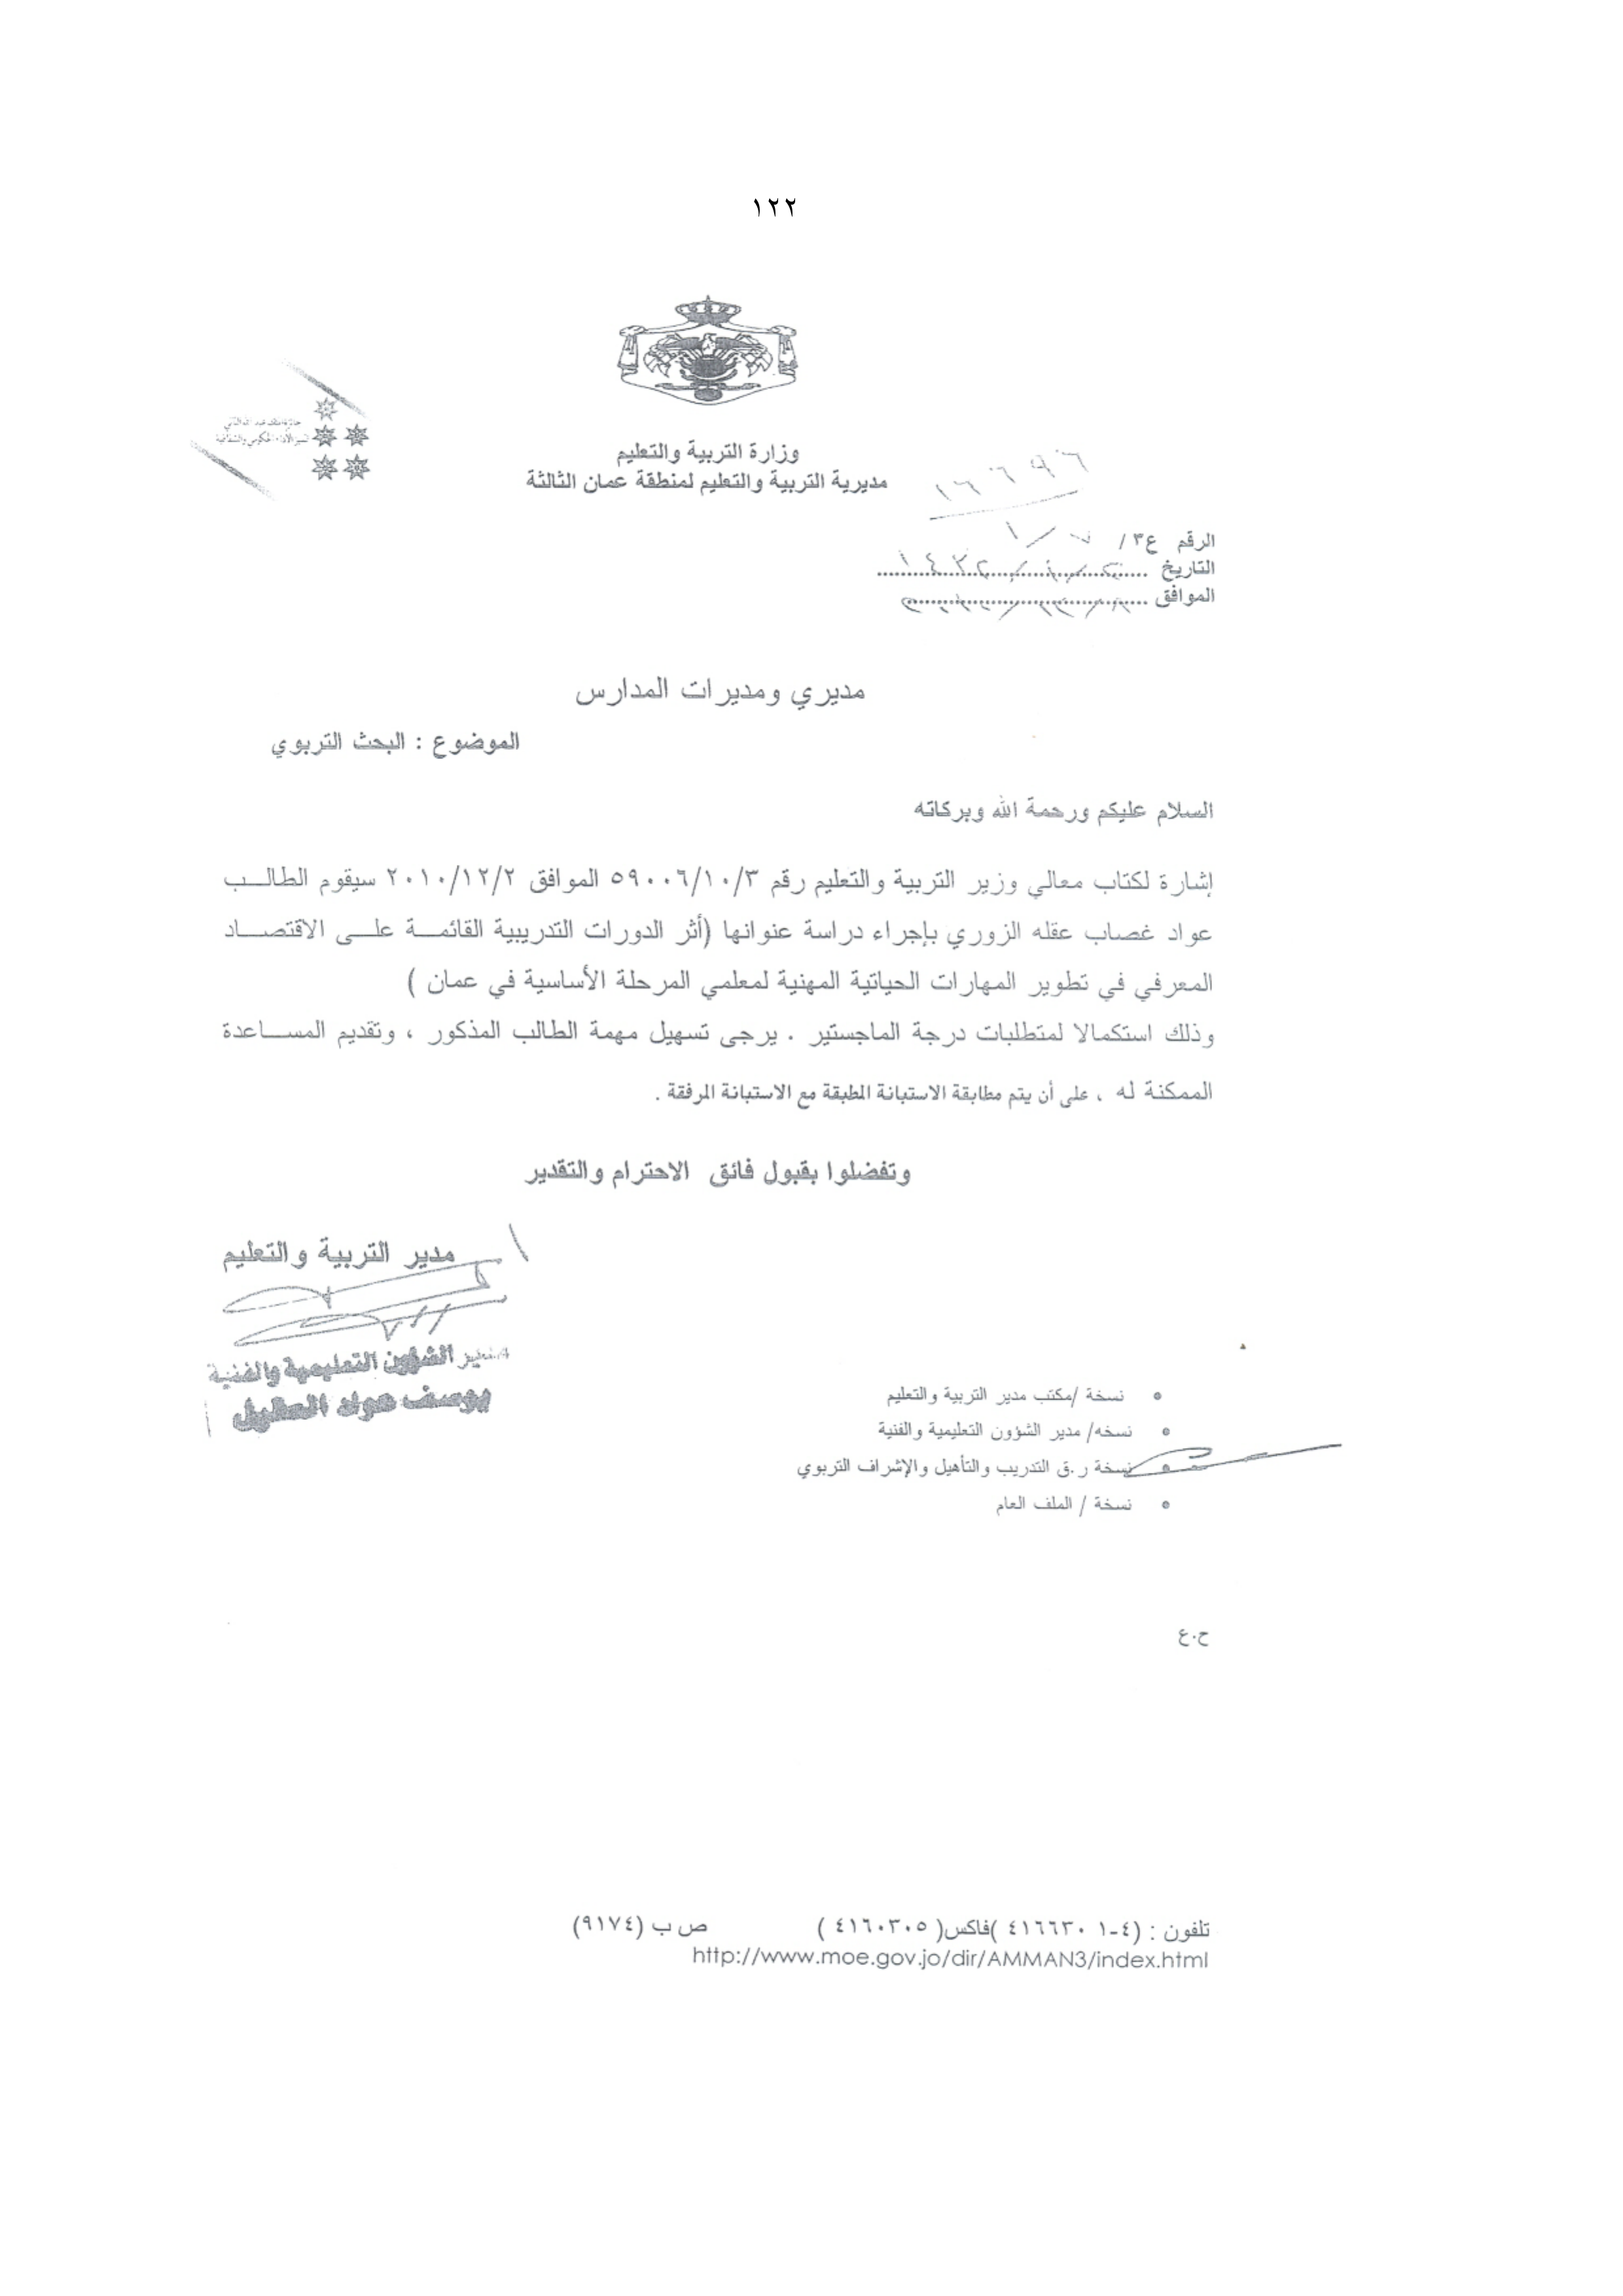 ١٢٢
جائزة الملك عبد الله الثاني
لتميز الأداء الحكومي والشفافية
وزارة التربية والتعليم
مديرية التربية والتعليم لمنطقة عمان الثالثة
١٦٦٩٦
الرقم ع٣/ ١/٧
التاريخ
الموافق
مديري ومديرات المدارس
الموضوع : البحث التربوي
السلام عليكم ورحمة الله وبركاته
إشارة لكتاب معالي وزير التربية والتعليم رقم ٥٩٠٠٦/١٠/٣ الموافق ٢٠١٠/١٢/٢ سيقوم الطالب
عواد غصاب عقله الزوري بإجراء دراسة عنوانها (أثر الدورات التدريبية القائمة على الاقتصاد
المعرفي في تطوير المهارات الحياتية المهنية لمعلمي المرحلة الأساسية في عمان )
وذلك استكمالا لمتطلبات درجة الماجستير . يرجى تسهيل مهمة الطالب المذكور ، وتقديم المساعدة
الممكنة له ، على أن يتم مطابقة الاستبانة المطبقة مع الاستبانة المرفقة .
وتفضلوا بقبول فائق الاحترام والتقدير
مدير التربية والتعليم
مدير الشؤون التعليمية والفنية
يوسف عواد
• نسخة /مكتب مدير التربية والتعليم
• نسخه/ مدير الشؤون التعليمية والفنية
• نسخة ر.ق التدريب والتأهيل والإشراف التربوي
• نسخة / الملف العام
ح.ع
تلفون : (٤-١ ٤١٦٦٣٠ )فاكس( ٤١٦٠٣٠٥ ) ص ب (٩١٧٤)
http://www.moe.gov.jo/dir/AMMAN3/index.html